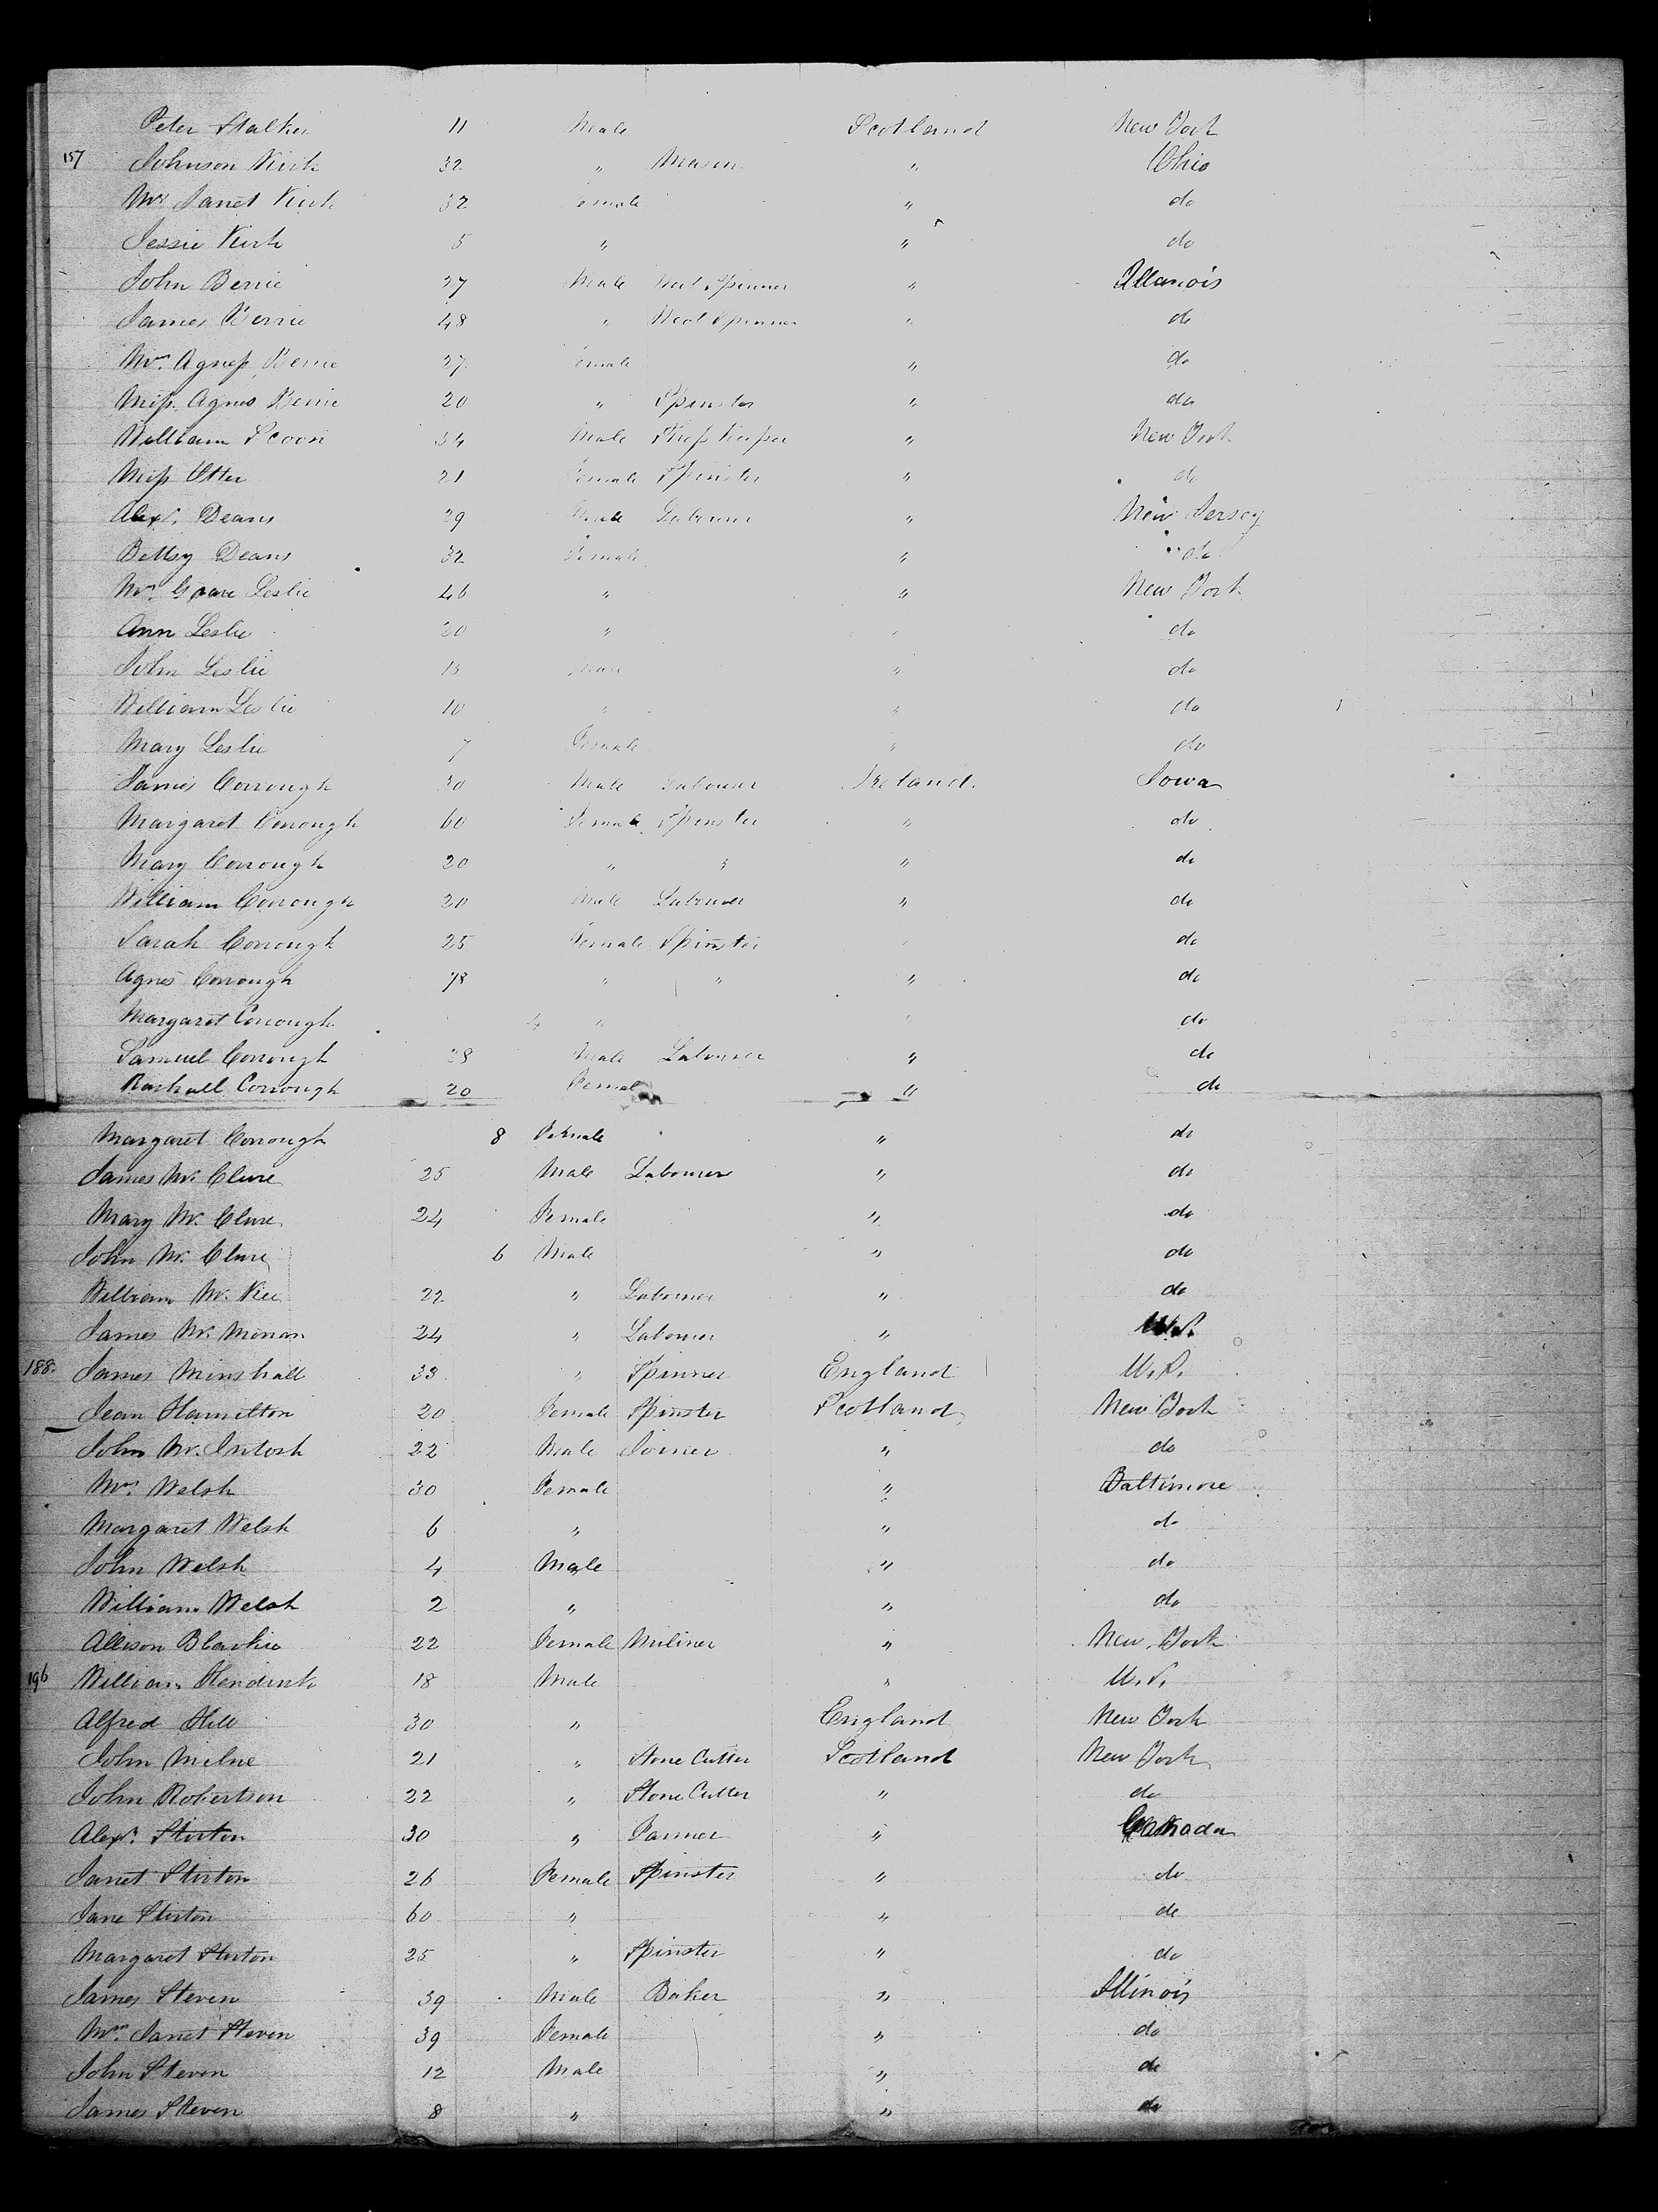 Peter Stalker 11 Male Scotland New York
157 Johnson Kirk 32 " Mason " Ohio
Mrs Janet Kirk 32 Female " do
Jessie Kirk 5 " " do
John Berrie 27 Male Wool Spinner " Illanois
James Berrie 48 " Wool Spinner " do
Mrs. Agness Berrie 27 Female " do
Miss Agnes Berrie 20 " Spinster " do
William Scoon 34 Male Shop Keeper " New York
Miss Otter 21 Female Spinster " do
Alexr. Deans 29 Male Labourer " New Jersey
Betsy Deans 32 Female " do
Mrs. Leslie 46 " " New York
Ann Leslie 20 " " do
John Leslie 13 Male " do
William Leslie 10 " " do
Mary Leslie 7 Female " do
James Corrough 30 Male Labourer Ireland. Iowa
Margaret Corrough 60 Female Spinster " do
Mary Corrough 20 " " " do
William Corrough 20 Male Labourer " do
Sarah Corrough 25 Female Spinster " do
Agnes Corrough 78 " " " do
Margaret Corrough 4 " " do
Samuel Corrough 28 Male Labourer " do
Rachall Corrough 20 Female " do
Margaret Corrough 8 Female " do
James Mc. Clure 25 Male Labourer " do
Mary Mc. Clure 24 Female " do
John Mc. Clure 6 Male " do
William Mc. Kee 22 " Labourer " do
James Mc. Minan 24 " Labourer " U.S.
188. James Minshall 33 " Spinner England U.S.
Jean Hamilton 20 Female Spinster Scotland New York
John Mc. Intosh 22 Male Joiner " do
Mrs. Welsh 30 Female " Baltimore
Margaret Welsh 6 " " do
John Welsh 4 Male " do
William Welsh 2 " " do
Allison Blackie 22 Female Miliner " New York
196 William 18 Male " U.S.
Alfred Hill 30 " England New York
John Milne 21 " Stone Cutter Scotland New York
John Robertson 22 " Stone Cutter " do
Alexr. Stirton 30 " Farmer " Canada
Janet Stirton 26 Female Spinster " do
Jane Stirton 60 " " do
Margaret Stirton 25 " Spinster " do
James Steven 39 Male Baker " Illinois
Mrs. Janet Steven 39 Female " do
John Steven 12 Male " do
James Steven 8 " " do